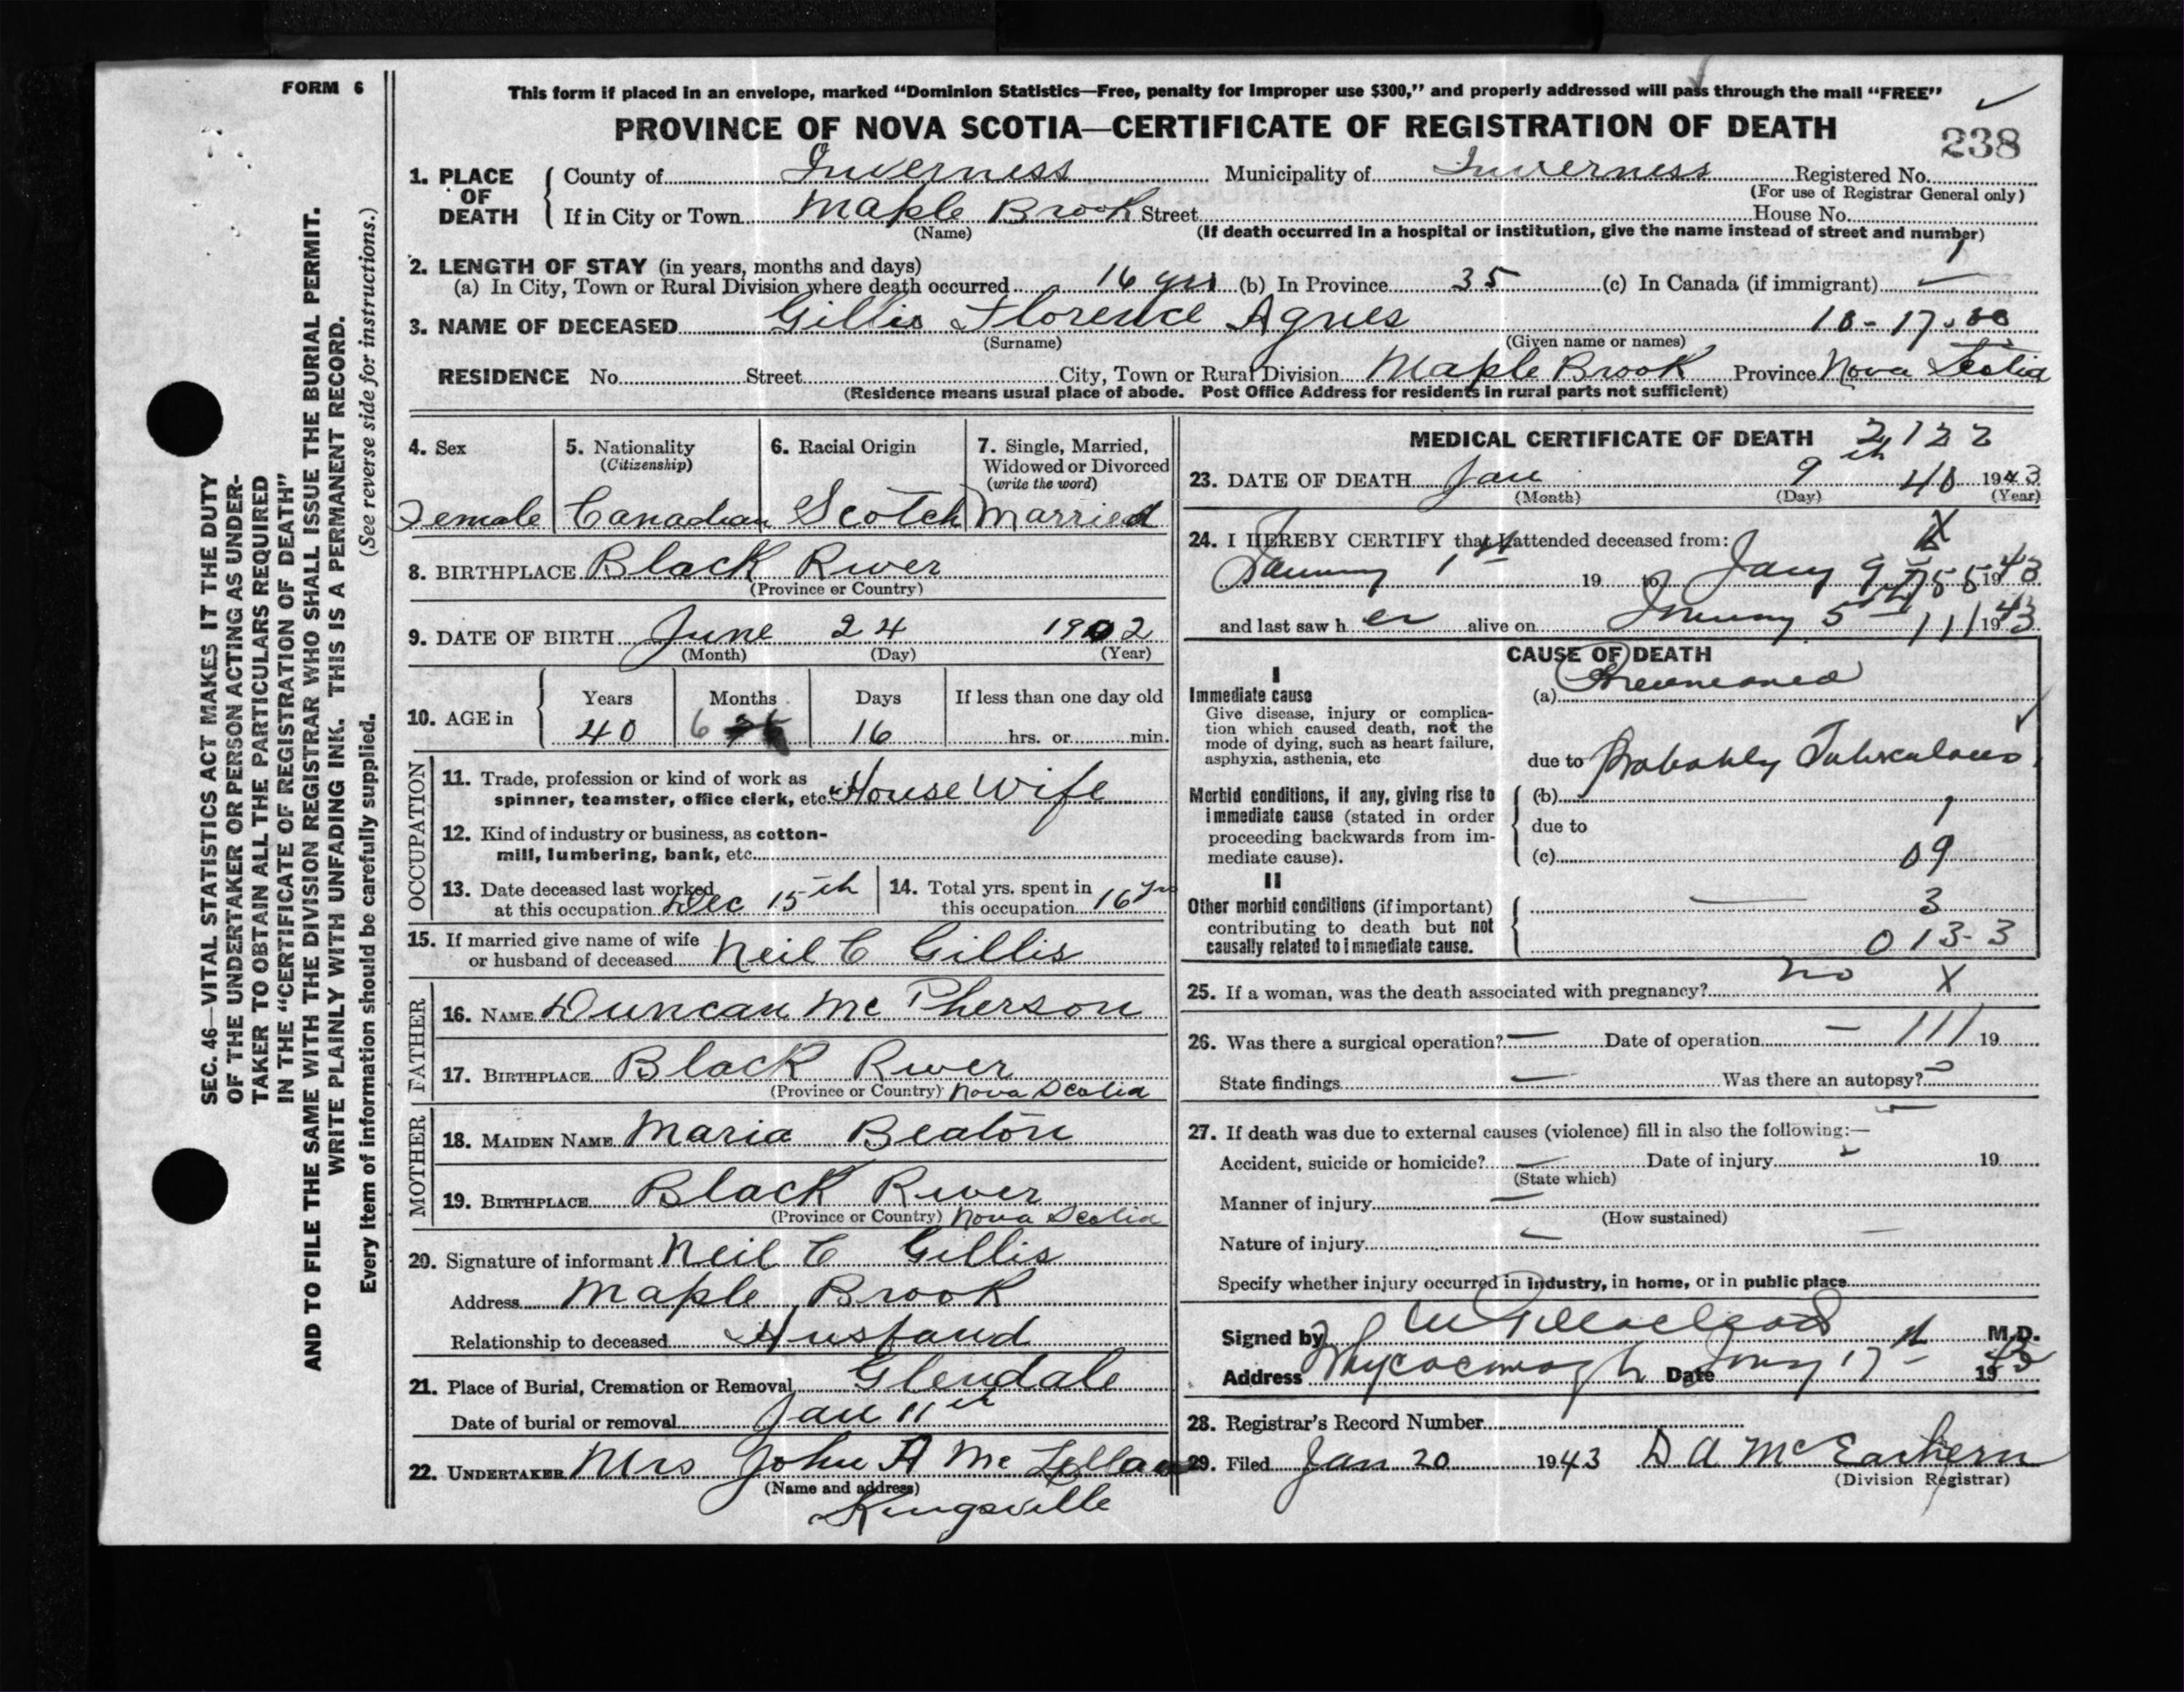 FORM 6
This form if placed in an envelope, marked "Dominion Statistics—Free, penalty for improper use $300," and properly addressed will pass through the mail "FREE"
PROVINCE OF NOVA SCOTIA—CERTIFICATE OF REGISTRATION OF DEATH
238
1. PLACE OF DEATH
County of Inverness Municipality of Inverness Registered No.
(For use of Registrar General only)
If in City or Town Maple Brook Street House No.
(Name) (If death occurred in a hospital or institution, give the name instead of street and number)
2. LENGTH OF STAY (in years, months and days)
(a) In City, Town or Rural Division where death occurred 16 yrs (b) In Province 35 (c) In Canada (if immigrant) —
3. NAME OF DECEASED Gillis Florence Agnes
(Surname) (Given name or names)
RESIDENCE No. Street City, Town or Rural Division Maple Brook Province Nova Scotia
(Residence means usual place of abode. Post Office Address for residents in rural parts not sufficient)
4. Sex
Female
5. Nationality
(Citizenship)
Canadian
6. Racial Origin
Scotch
7. Single, Married,
Widowed or Divorced
(write the word)
Married
8. BIRTHPLACE Black River
(Province or Country)
9. DATE OF BIRTH June 24 1902
(Month) (Day) (Year)
10. AGE in
Years Months Days If less than one day old
40 6 16 hrs. or min.
OCCUPATION
11. Trade, profession or kind of work as
spinner, teamster, office clerk, etc. House Wife
12. Kind of industry or business, as cotton-
mill, lumbering, bank, etc.
13. Date deceased last worked
at this occupation Dec 15th
14. Total yrs. spent in
this occupation 16 yrs
15. If married give name of wife
or husband of deceased Neil C Gillis
FATHER
16. NAME Duncan Mc Pherson
17. BIRTHPLACE Black River
(Province or Country) Nova Scotia
MOTHER
18. MAIDEN NAME Maria Beaton
19. BIRTHPLACE Black River
(Province or Country) Nova Scotia
20. Signature of informant Neil C Gillis
Address Maple Brook
Relationship to deceased Husband
21. Place of Burial, Cremation or Removal Glendale
Date of burial or removal Jan 11th
22. UNDERTAKER Mrs John A Mc Lellan
(Name and address)
Kingsville
MEDICAL CERTIFICATE OF DEATH 2122
23. DATE OF DEATH Jan 9th 40 1943
(Month) (Day) (Year)
24. I HEREBY CERTIFY that I attended deceased from:
January 1st 19 to Jany 9 1943
and last saw her alive on 5th 1943
CAUSE OF DEATH
I
Immediate cause
Give disease, injury or complica-
tion which caused death, not the
mode of dying, such as heart failure,
asphyxia, asthenia, etc
(a) Pneumonia
due to Probably Tuberculous
Morbid conditions, if any, giving rise to
immediate cause (stated in order
proceeding backwards from im-
mediate cause).
(b)
due to
(c) 09
II
Other morbid conditions (if important)
contributing to death but not
causally related to immediate cause.
— 3
013-3
25. If a woman, was the death associated with pregnancy? no X
26. Was there a surgical operation? — Date of operation — 111 19
State findings — Was there an autopsy?
27. If death was due to external causes (violence) fill in also the following:—
Accident, suicide or homicide? — Date of injury 19
(State which)
Manner of injury —
(How sustained)
Nature of injury —
Specify whether injury occurred in industry, in home, or in public place
Signed by M.D.
Address Whycocomagh Date Jany 17 1943
28. Registrar's Record Number
29. Filed Jan 20 1943 D A McEachern
(Division Registrar)
SEC. 46—VITAL STATISTICS ACT MAKES IT THE DUTY
OF THE UNDERTAKER OR PERSON ACTING AS UNDER-
TAKER TO OBTAIN ALL THE PARTICULARS REQUIRED
IN THE "CERTIFICATE OF REGISTRATION OF DEATH"
AND TO FILE THE SAME WITH THE DIVISION REGISTRAR WHO SHALL ISSUE THE BURIAL PERMIT.
WRITE PLAINLY WITH UNFADING INK. THIS IS A PERMANENT RECORD.
Every item of information should be carefully supplied. (See reverse side for instructions.)